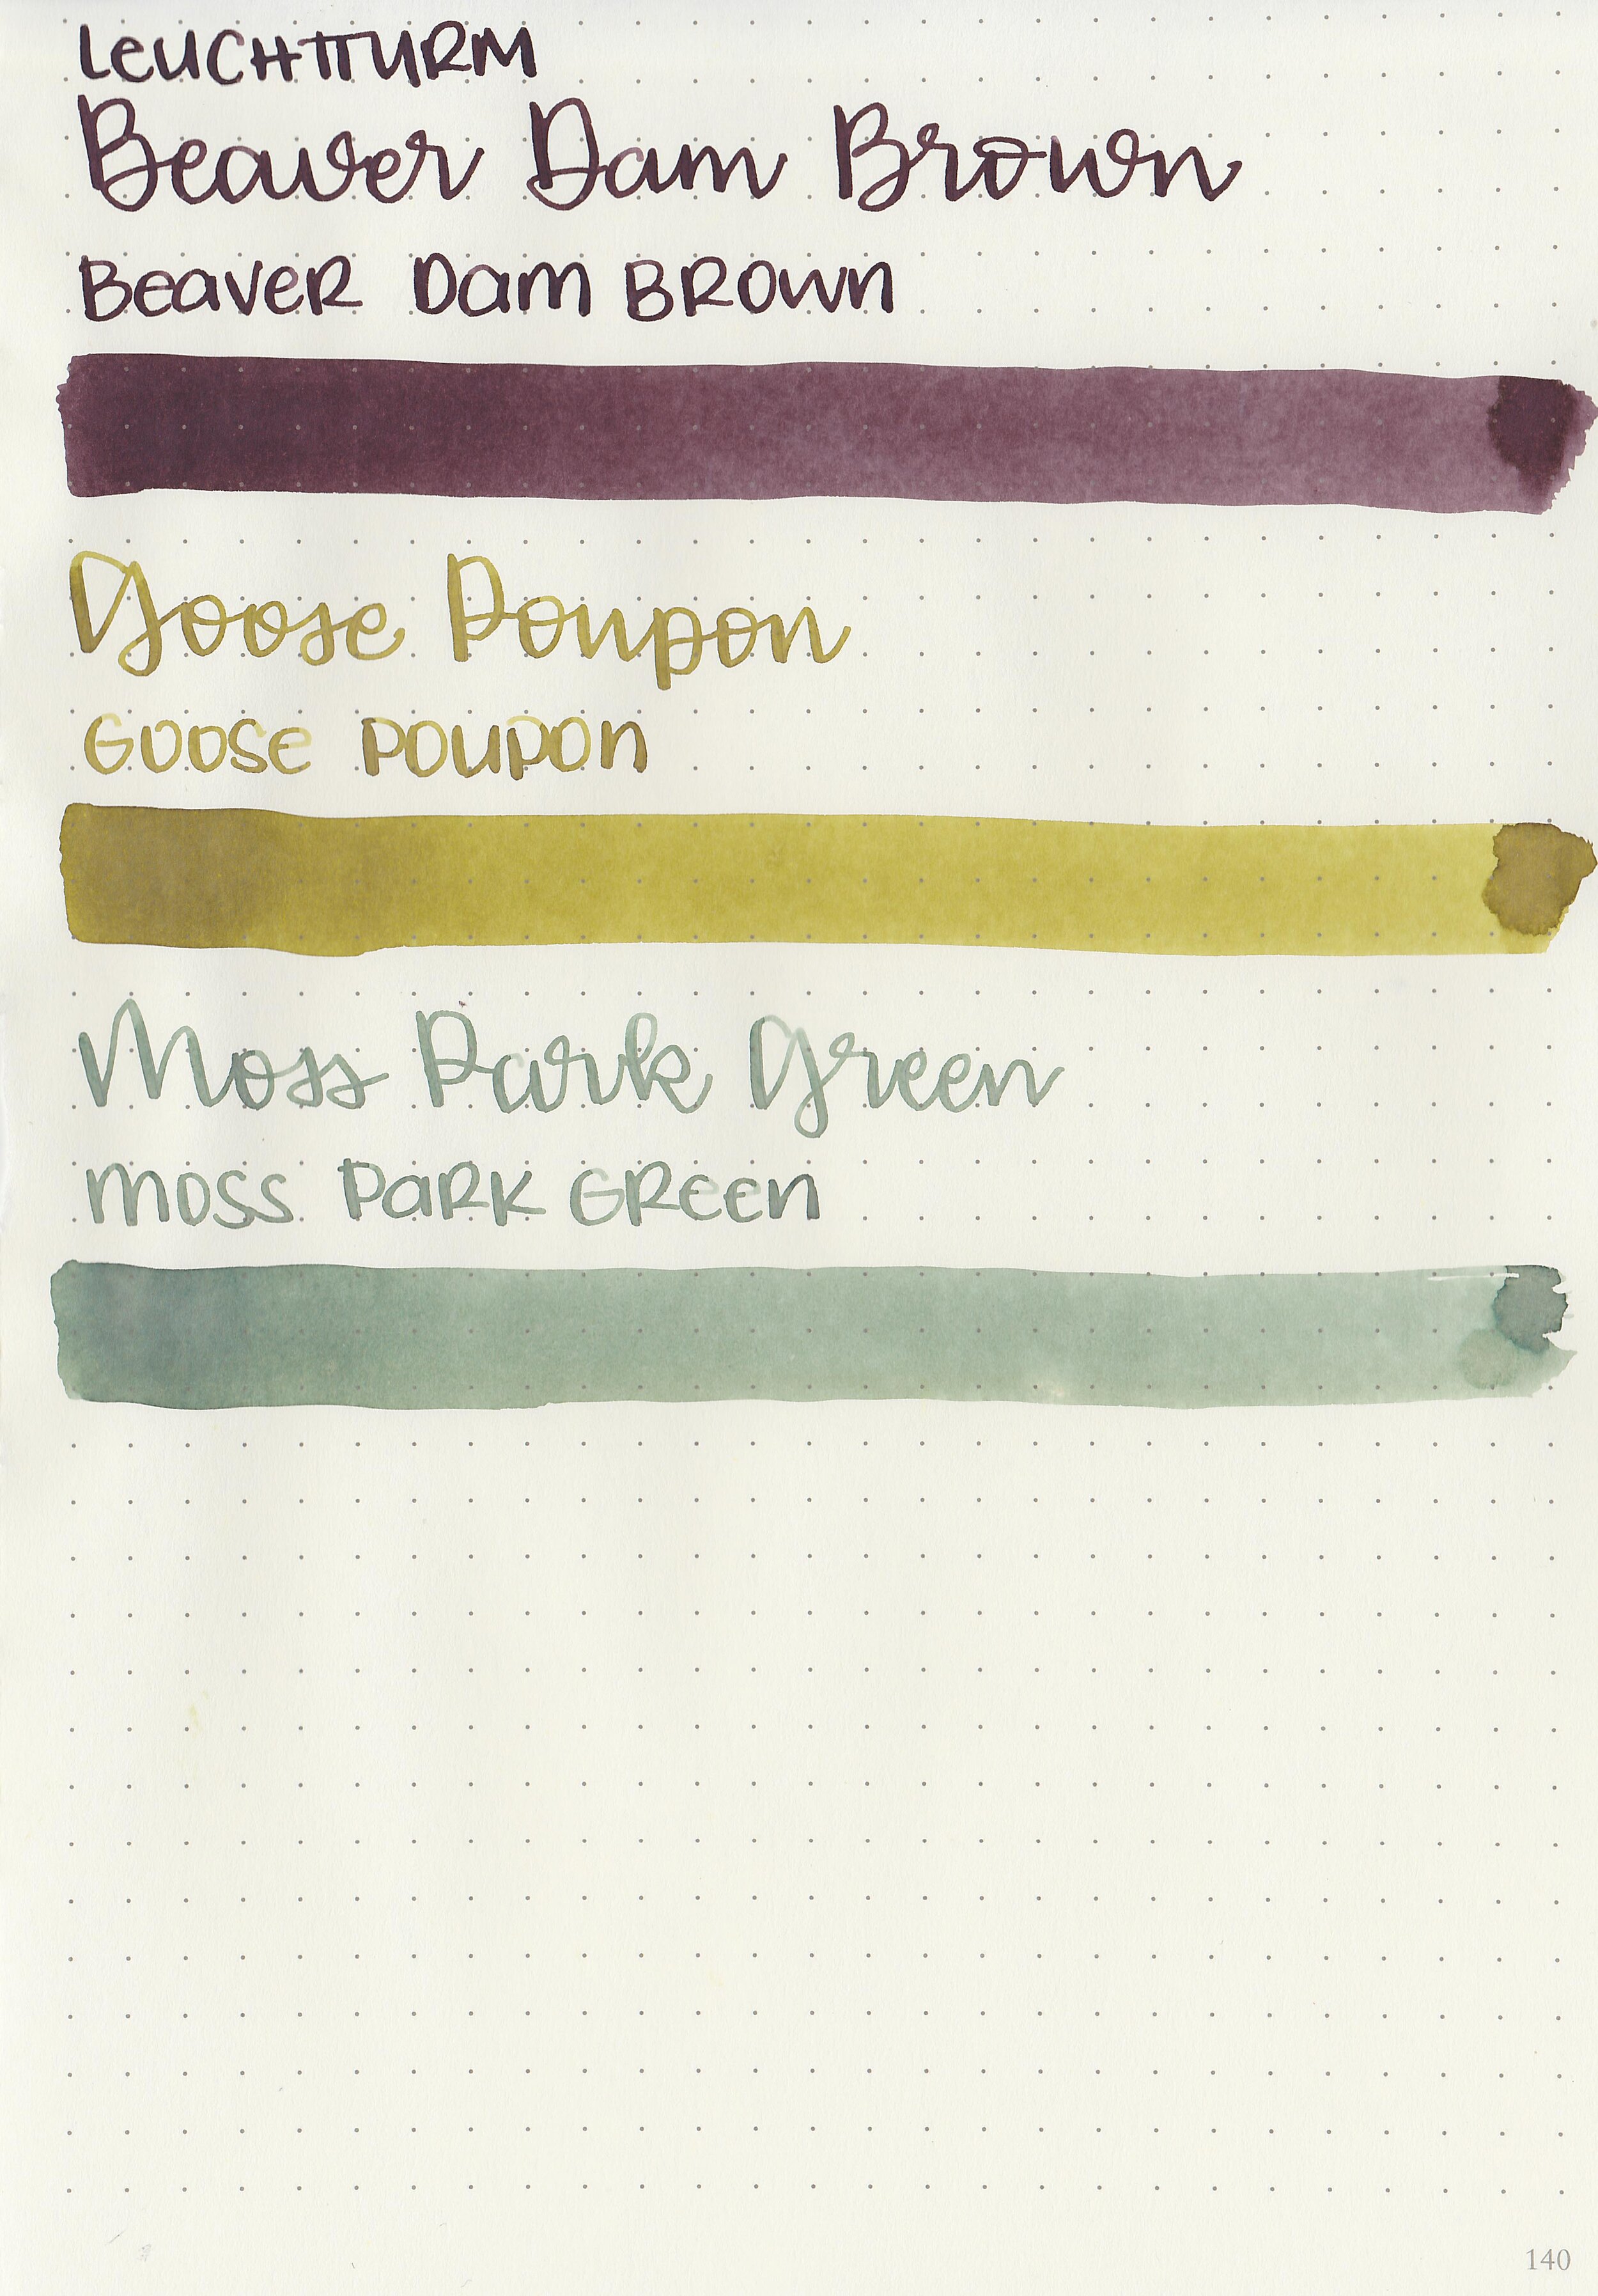 LEUCHTTURM
Beaver Dam Brown
BEAVER DAM BROWN
Goose Poupon
GOOSE POUPON
Moss Park Green
MOSS PARK GREEN
140